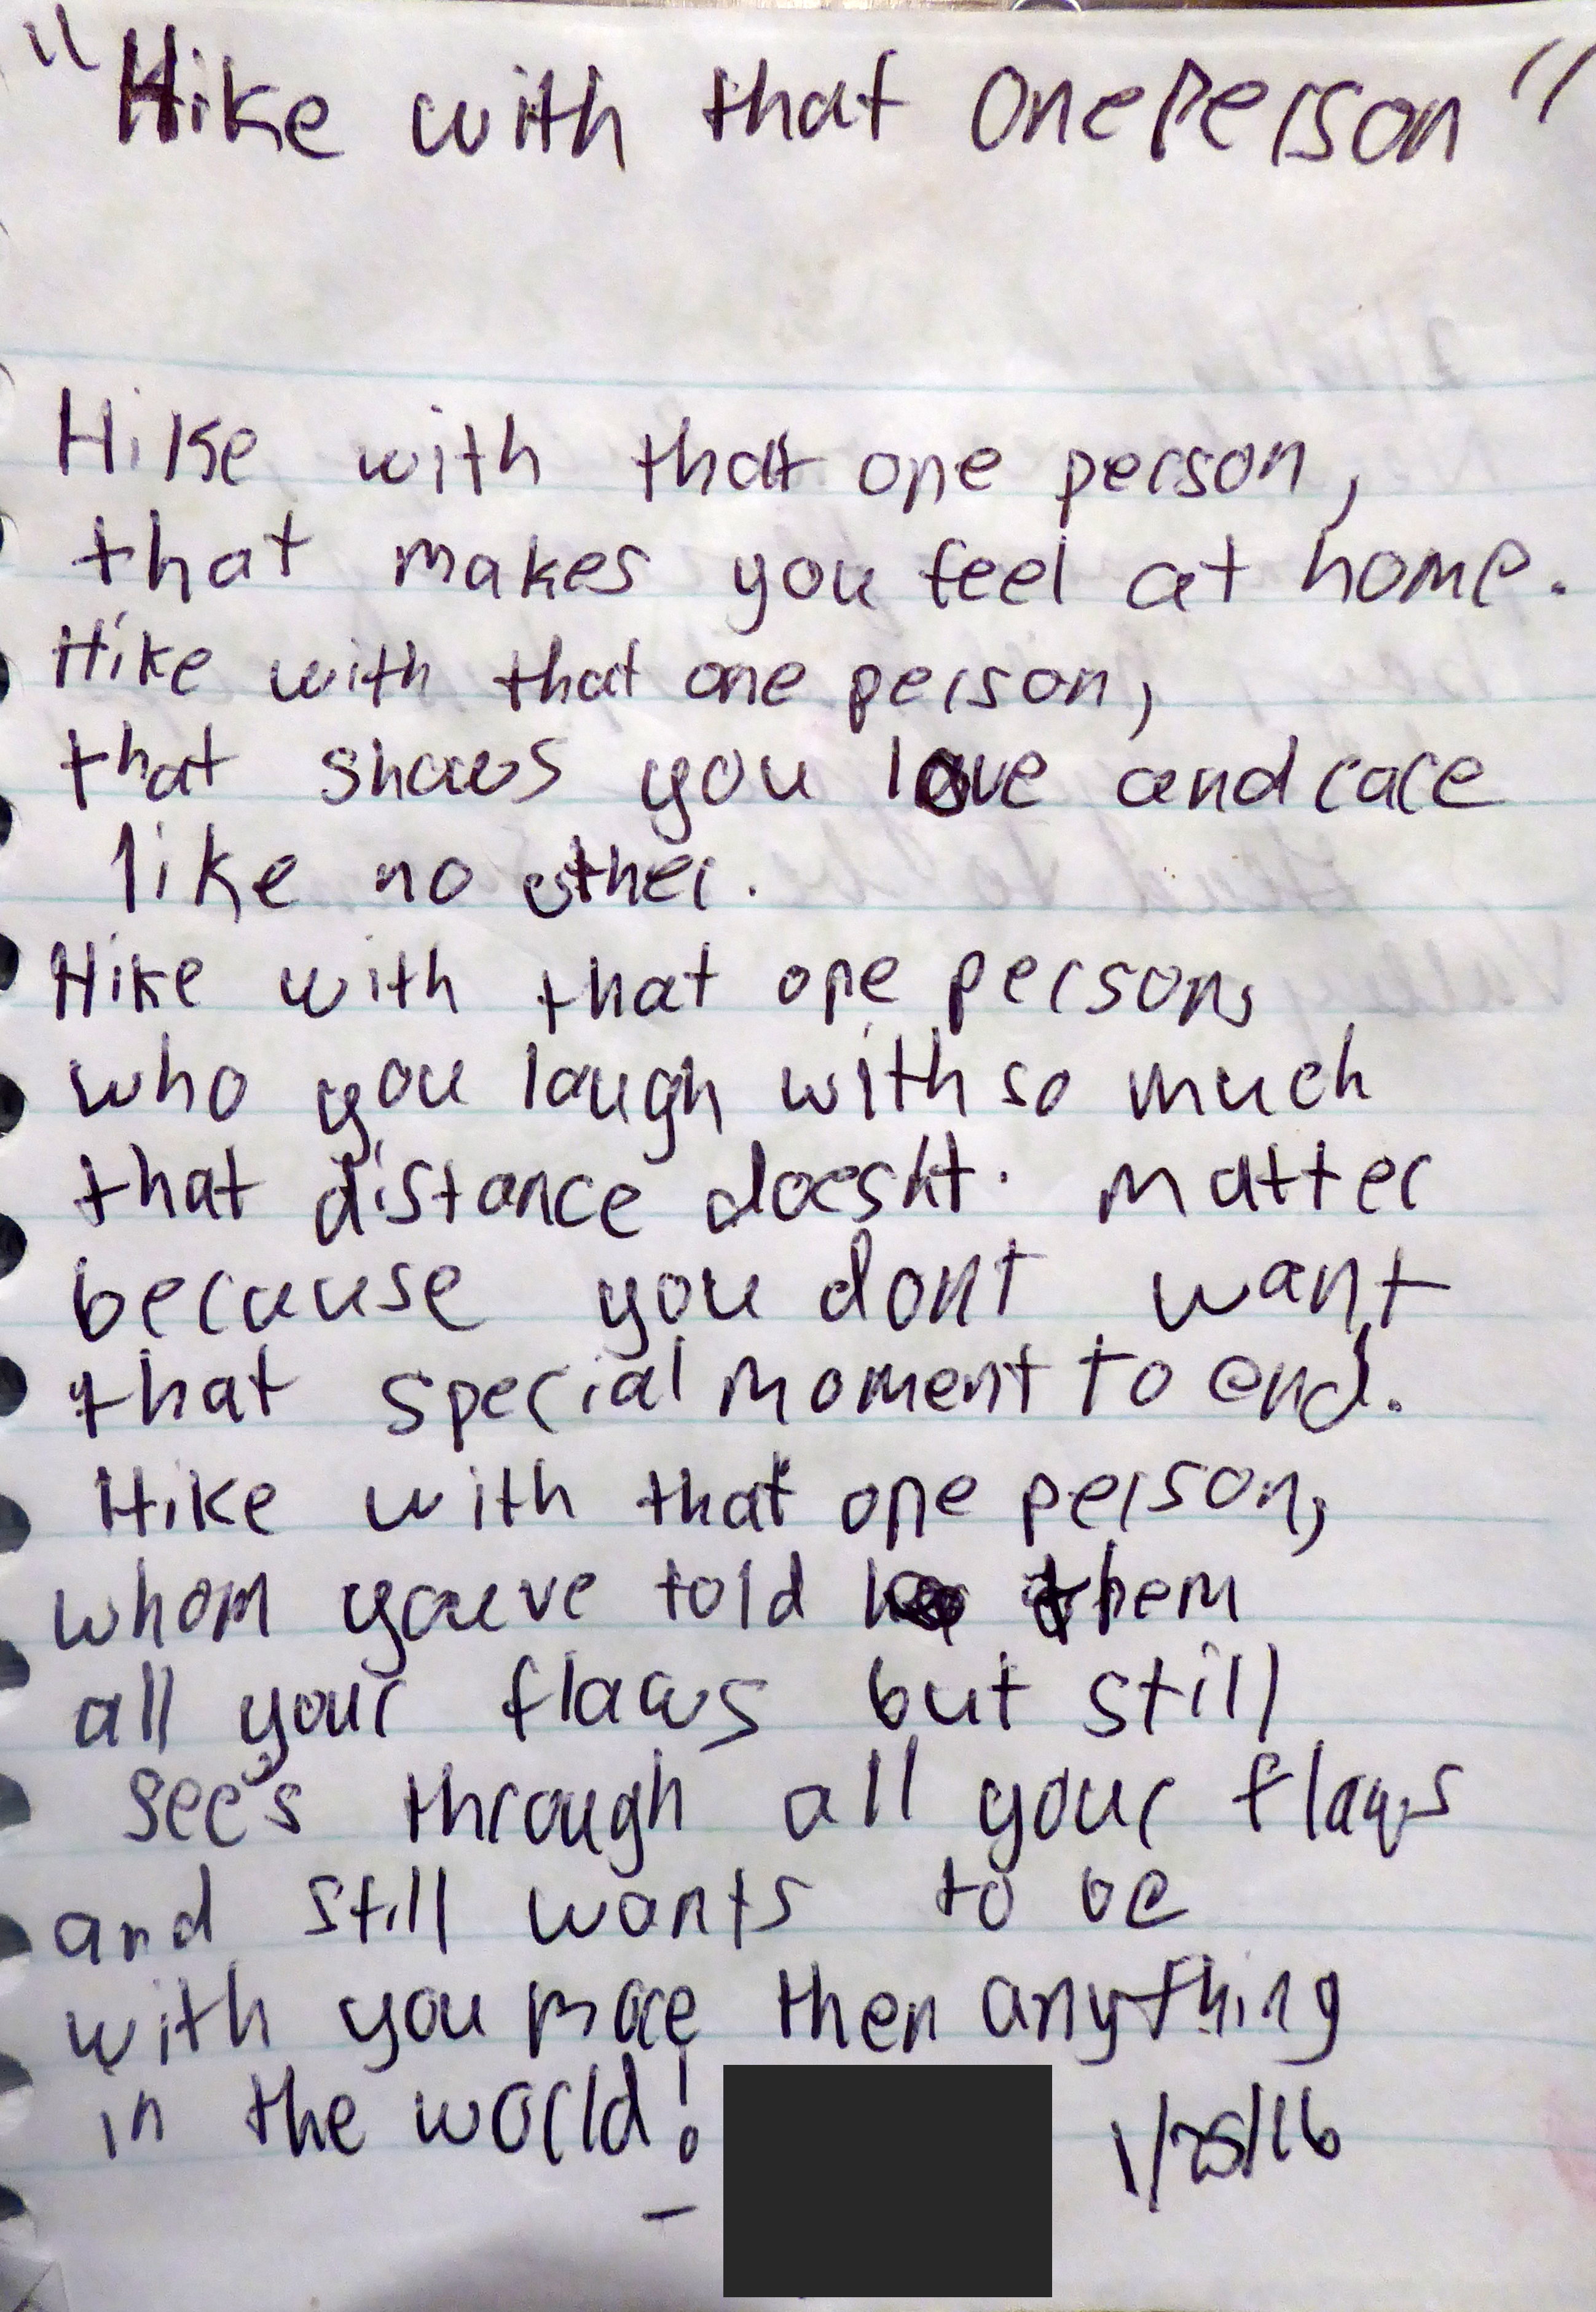 "Hike with that One Person"
Hike with that one person,
that makes you feel at home.
Hike with that one person,
that shows you love and care
like no other.
Hike with that one person,
who you laugh with so much
that distance doesnt. matter
because you dont want
that special moment to end.
Hike with that one person,
whom youve told them
all your flaws but still
see's through all your flaws
and still wants to be
with you more then anything
in the world!
- 1/25/16